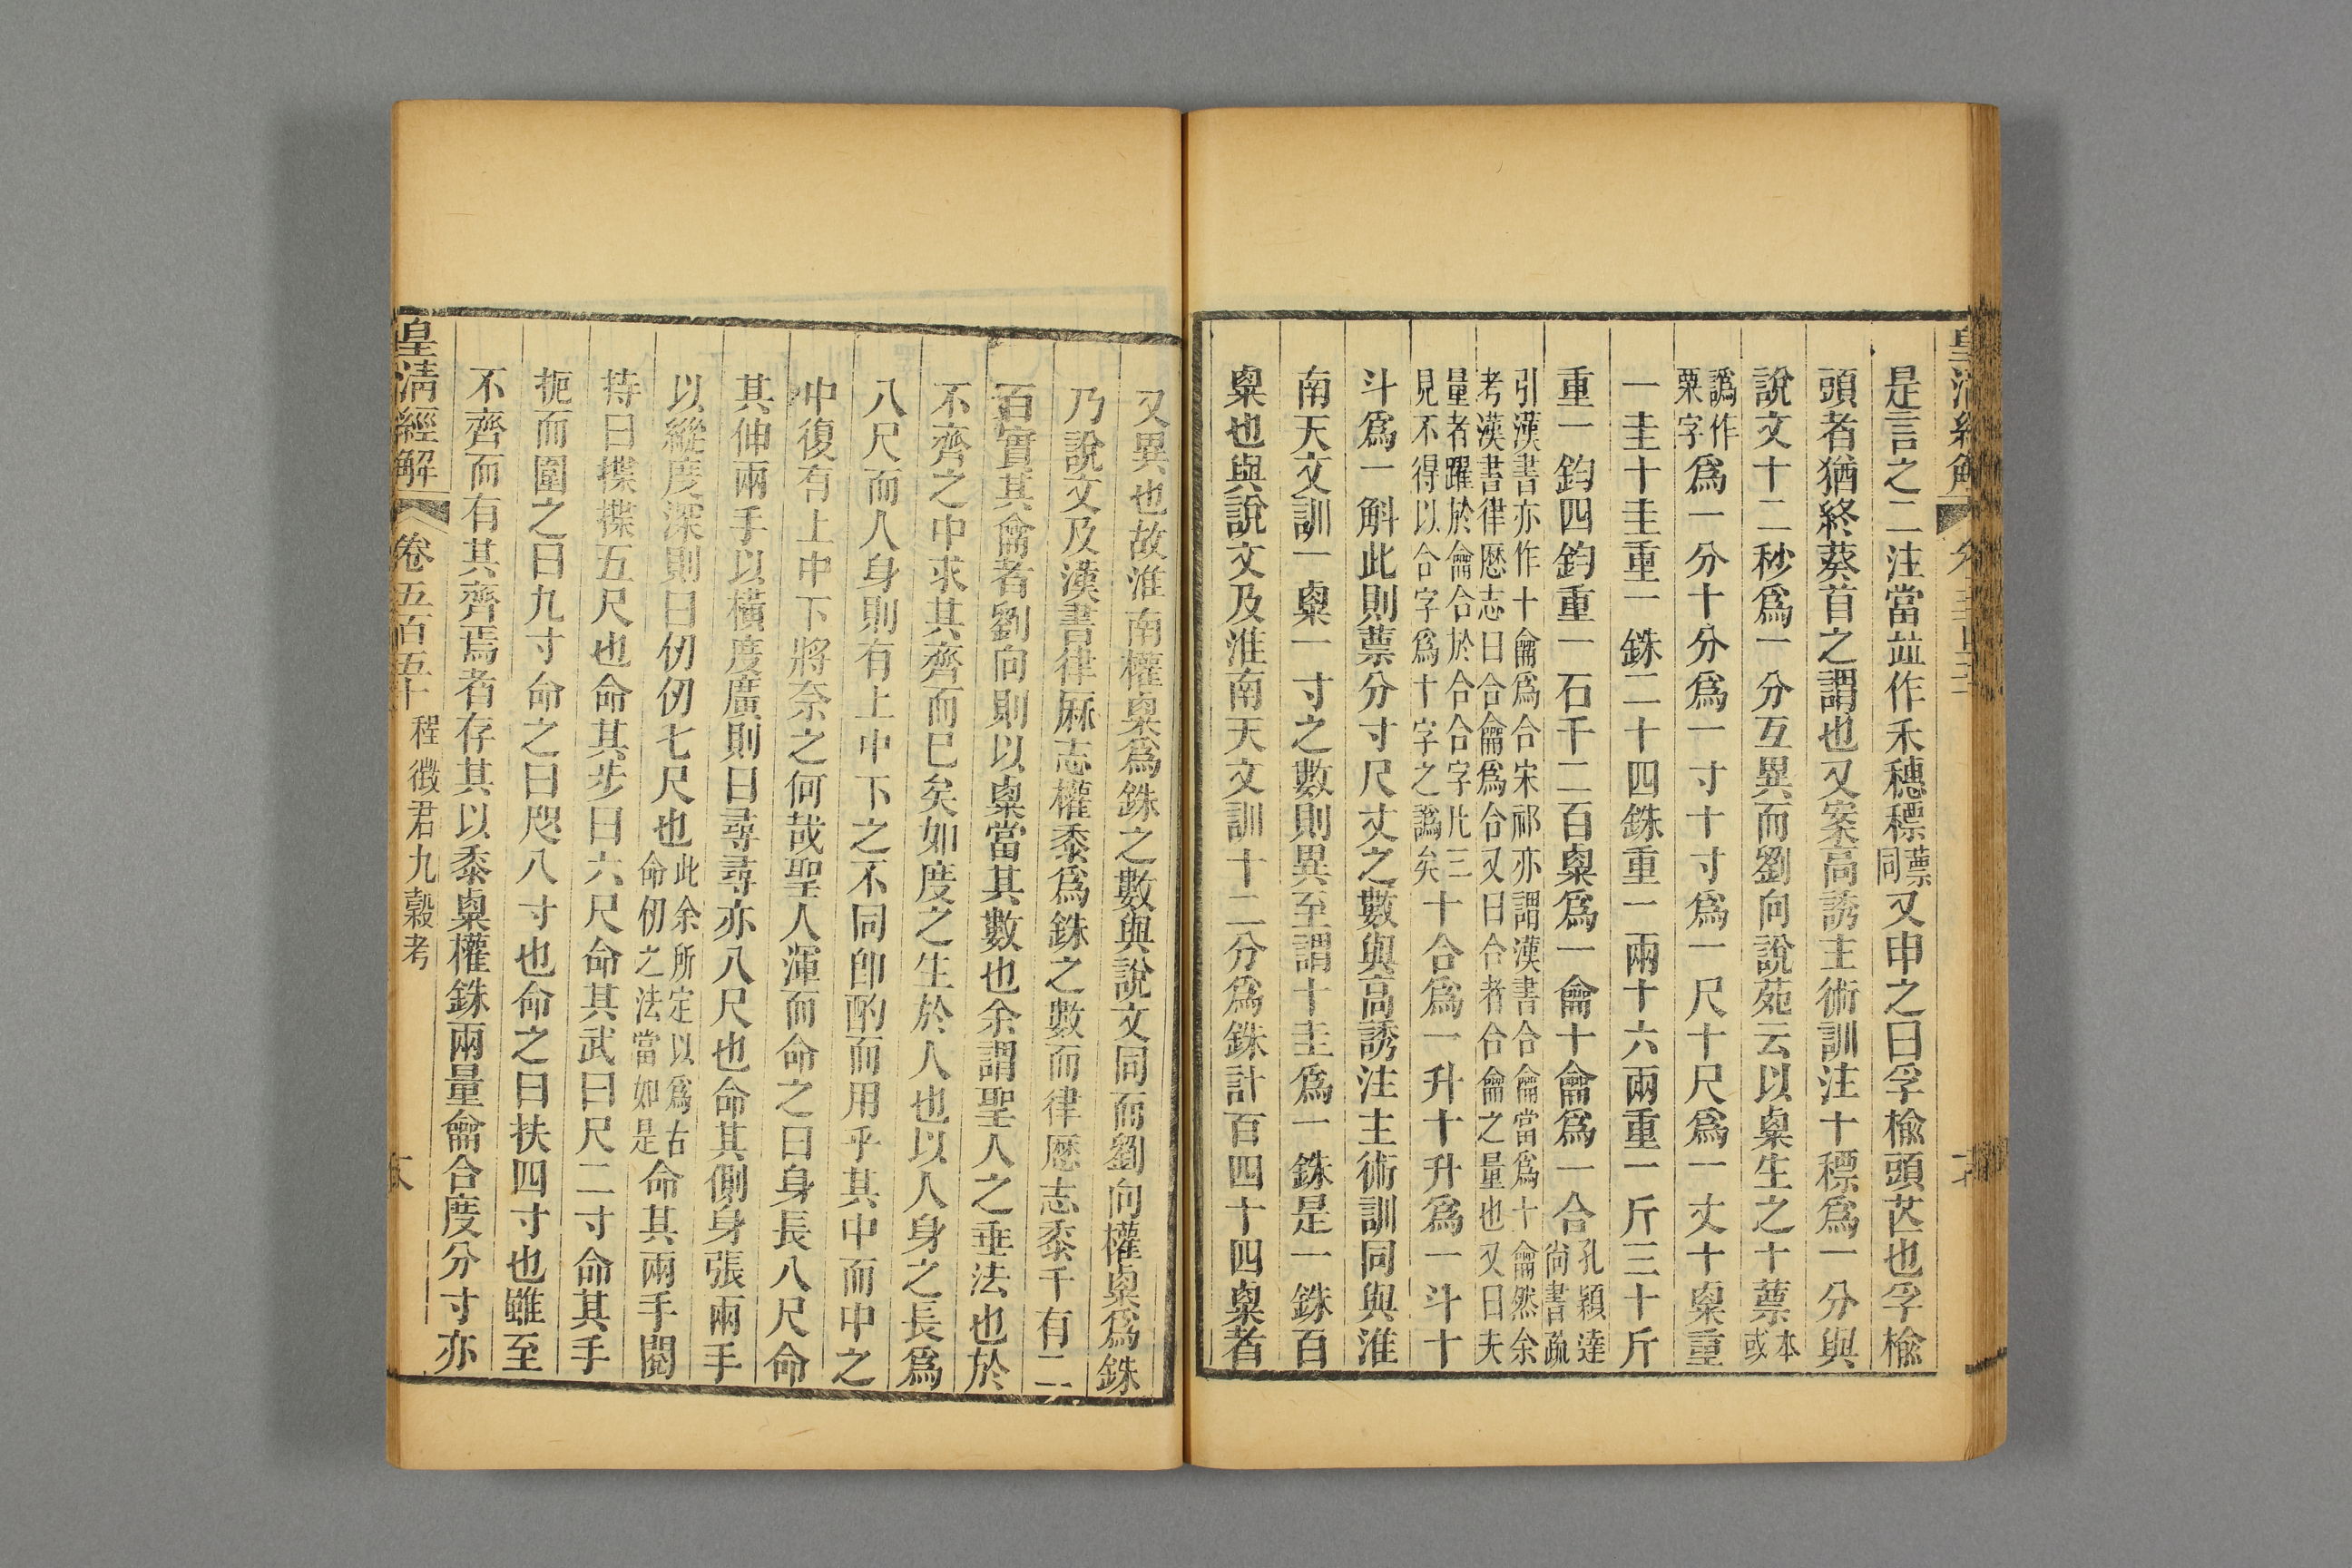 是言之二注當竝作禾穗穮蔈同又申之曰孚榆頭芒也孚榆
頭者猶終葵首之謂也又案高誘主術訓注十穮爲一分與
說文十二秒爲一分互異而劉向說苑云以㮚生之十蔈本或
譌作粟字爲一分十分爲一寸十寸爲一尺十尺爲一丈十㮚重
一圭十圭重一銖二十四銖重一兩十六兩重一斤三十斤
重一鈞四鈞重一石千二百㮚爲一龠十龠爲一合孔穎達尚書疏
引漢書亦作十龠爲合宋祁亦謂漢書合龠當爲十龠然余
考漢書律歷志曰合龠爲合又曰合者合龠之量也又曰夫
量者躍於龠合於合合字凡三
見不得以合字爲十字之譌矣十合爲一升十升爲一斗十
斗爲一斛此則蔈分寸尺丈之數與高誘注主術訓同與淮
南天文訓一㮚一寸之數則異至謂十圭爲一銖是一銖百
㮚也與說文及淮南天文訓十二分爲銖計百四十四㮚者
又異也故淮南權㮚爲銖之數與說文同而劉向權㮚爲銖
乃說文及漢書律厤志權黍爲銖之數而律歷志黍千有二
百實其龠者劉向則以㮚當其數也余謂聖人之垂法也於
不齊之中求其齊而已矣如度之生於人也以人身之長爲
八尺而人身則有上中下之不同卽酌而用乎其中而中之
中復有上中下將奈之何哉聖人渾而命之曰身長八尺命
其伸兩手以橫度廣則曰尋尋亦八尺也命其側身張兩手
以縱度深則曰仞仞七尺也此余所定以爲右命仞之法當如是命其兩手鬩
持曰揲揲五尺也命其步曰六尺命其武曰尺二寸命其手
扼而圍之曰九寸命之曰咫八寸也命之曰扶四寸也雖至
不齊而有其齊焉者存其以黍㮚權銖兩量龠合度分寸亦
皇清經解 卷五百五十 程徵君九穀考